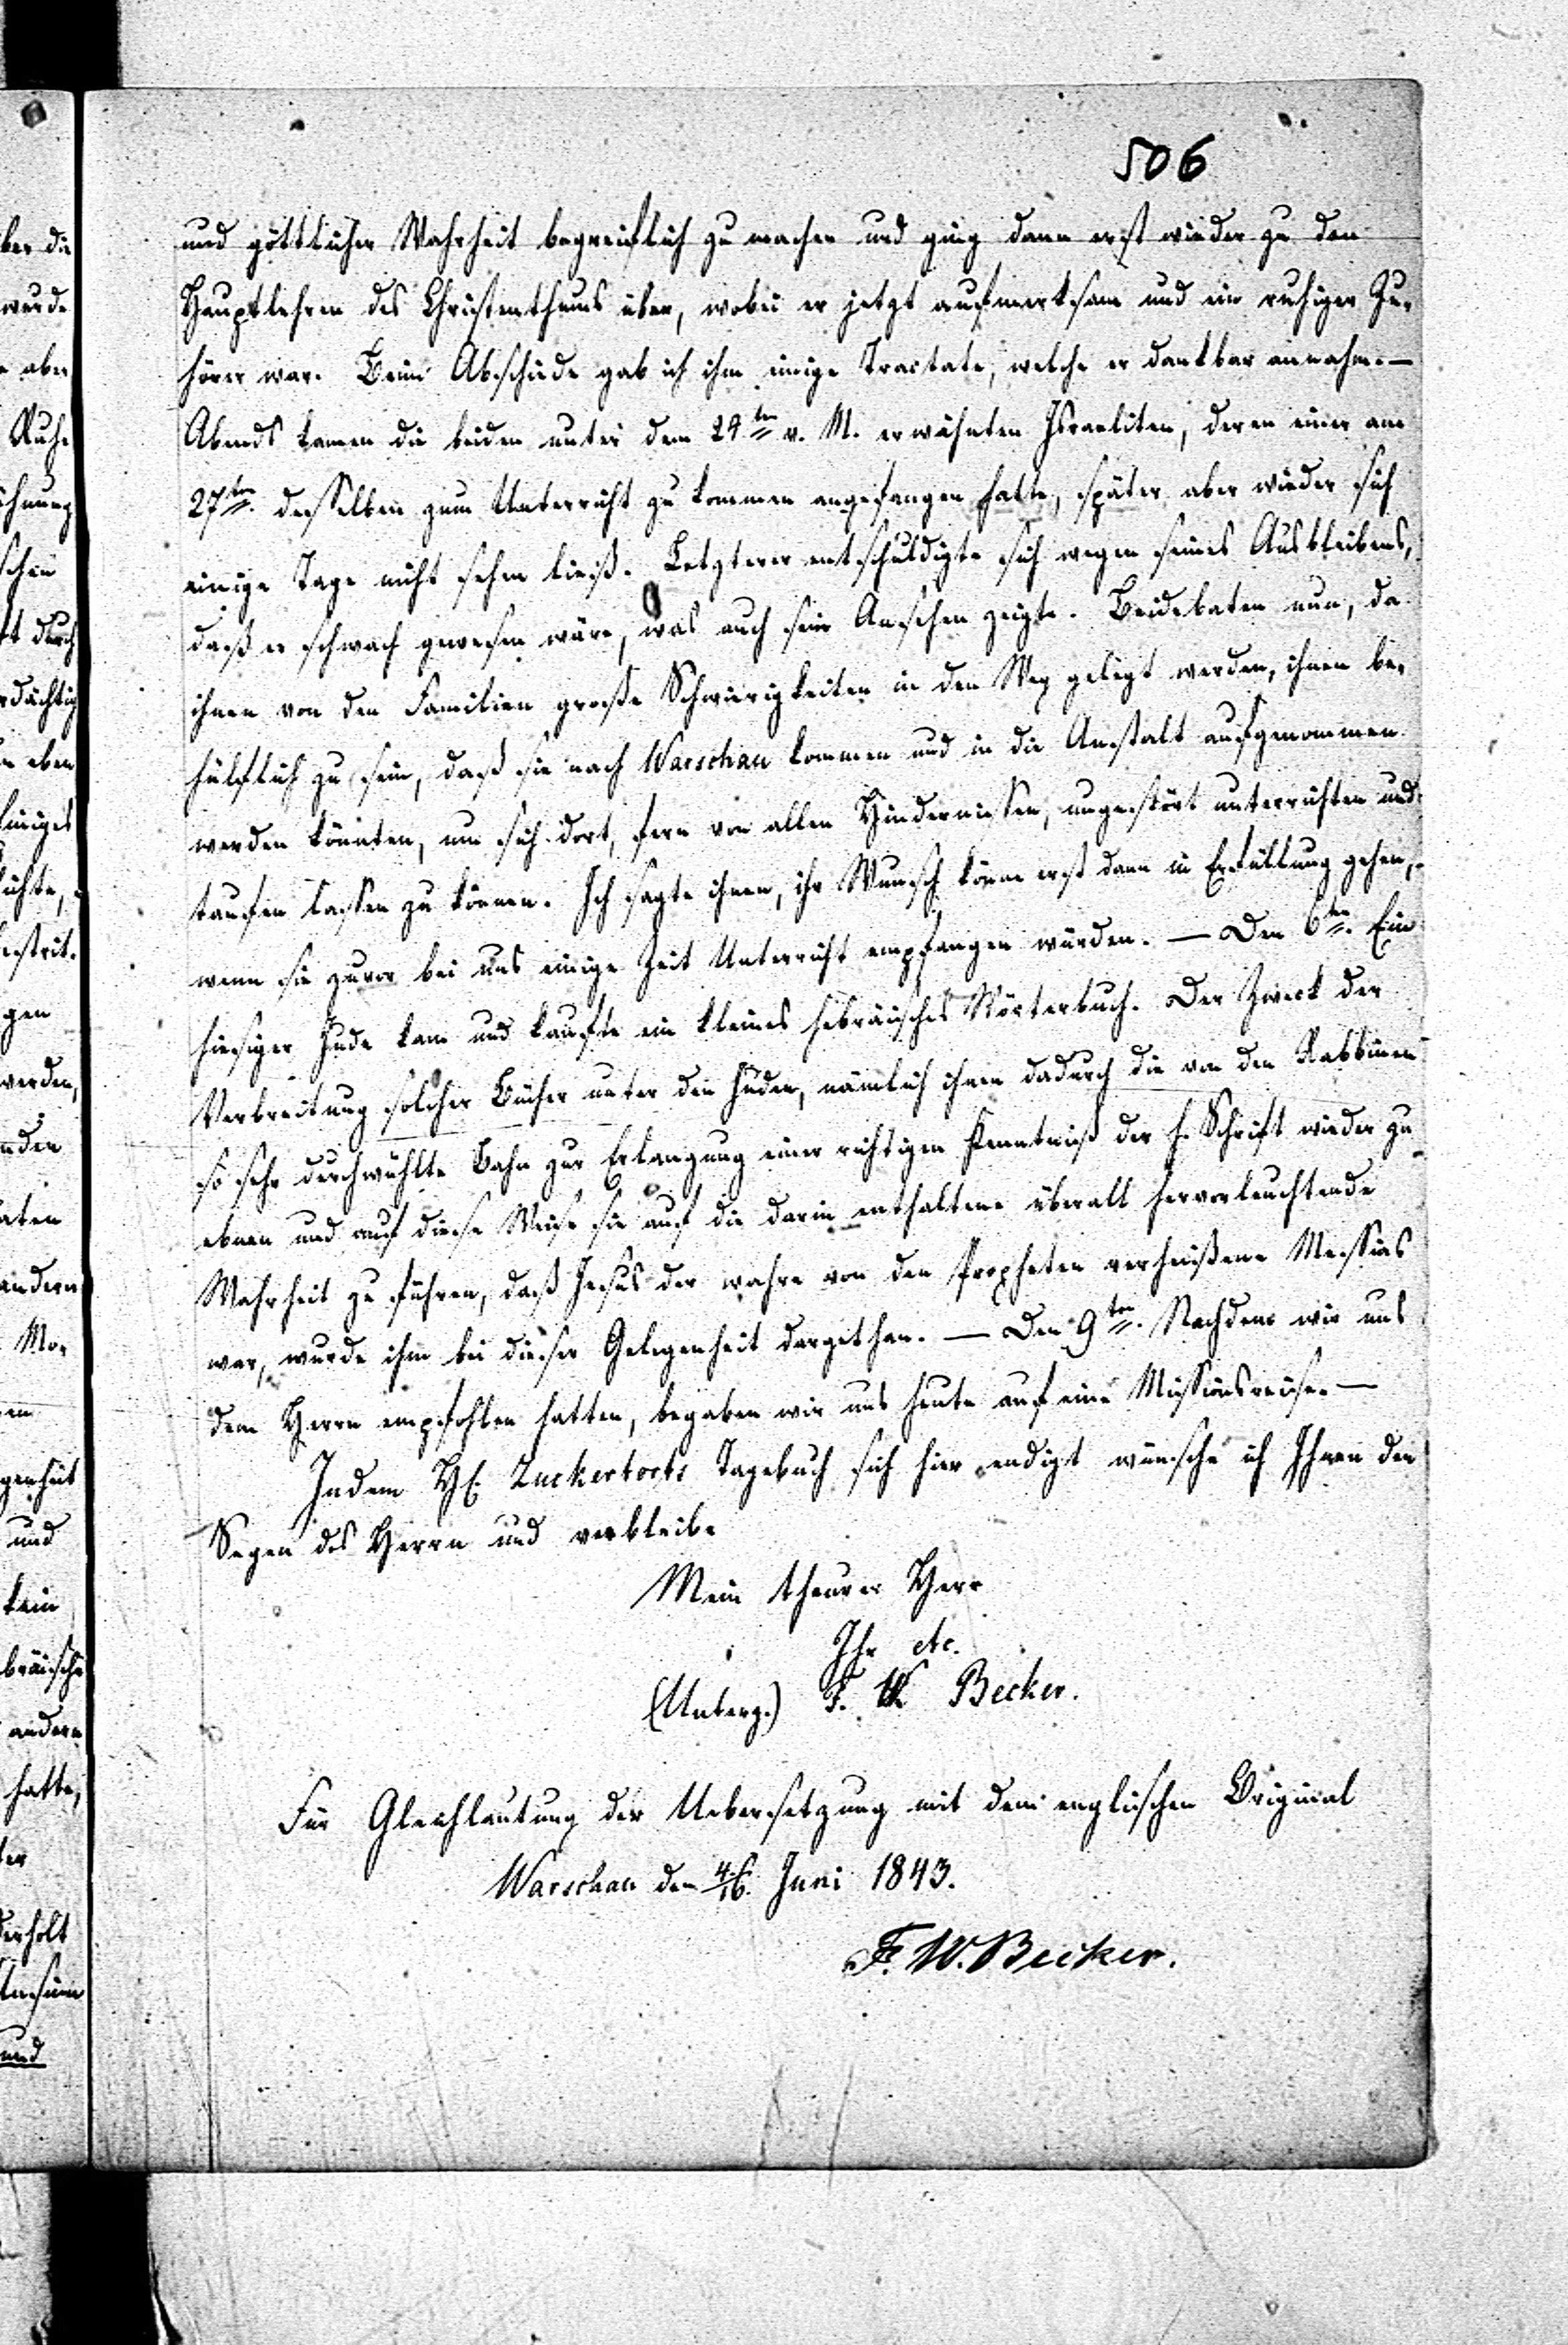 506
und göttlicher Wahrheit begreiflich zu machen und ging dann erst wieder zu den
Hauptlehren des Christenthums über, wobei er jetzt aufmerksam und ein ruhiger Zu-
hörer war. Beim Abschiede gab ich ihm einige Tractate, welche er dankbar annahm. —
Abends kamen die beiden unter dem 24ten v. M. erwähnten Israeliten, deren einer am
27ten desselben zum Unterricht zu kommen angefangen hatte, später aber wieder sich
einige Tage nicht sehen ließ. Letzterer entschuldigte sich wegen seines Ausbleibens,
daß er schwach gewesen wäre, was auch sein Ansehen zeigte. Beide baten nun, da
ihnen von den Familien große Schwierigkeiten in den Weg gelegt werden, ihnen be-
hülflich zu sein, daß sie nach Warschau kommen und in die Anstalt aufgenommen
werden könnten, um sich dort, fern von allen Hindernissen, ungestört unterrichten und
taufen lassen zu können. Ich sagte ihnen, ihr Wunsch könne erst dann in Erfüllung gehen,
wenn sie zuvor bei uns einige Zeit Unterricht empfangen würden. — Den 6ten. Ein
hiesiger Jude kam und kaufte ein kleines hebräisches Wörterbuch. Der Zweck der
Verbreitung solcher Bücher unter den Juden, nämlich ihnen dadurch die von den Rabbinen
so sehr durchwühlte Bahn zur Erlangung einer richtigen Kenntniß der h. Schrift wieder zu
ebnen und auf diese Weise sie auf die darin enthaltene überall hervorleuchtende
Wahrheit zu führen, daß Jesus der wahre von den Propheten verheißene Messias
war, wurde ihm bei dieser Gelegenheit dargethan. — Den 9ten. Nachdem wir uns
dem Herrn empfohlen hatten, begaben wir uns heute auf eine Missionsreise. —
Indem H. Zuckertorts Tagebuch sich hier endigt wünsche ich Ihnen den
Segen des Herrn und verbleibe
Mein theurer Herr
Ihr etc.
(Unterz.) F. W Becker.
Für Gleichlautung der Uebersetzung mit dem englischen Original
Warschau den 4/16. Juni 1843.
F. W. Becker.